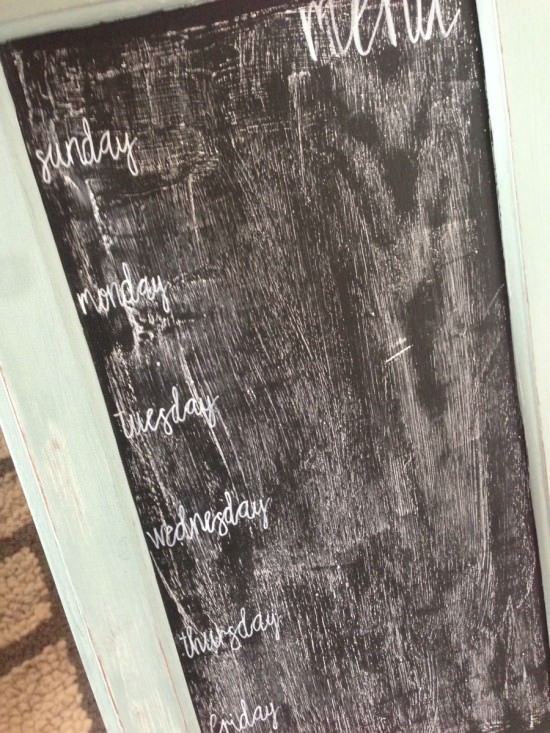 menu
sunday
monday
tuesday
wednesday
thursday
friday